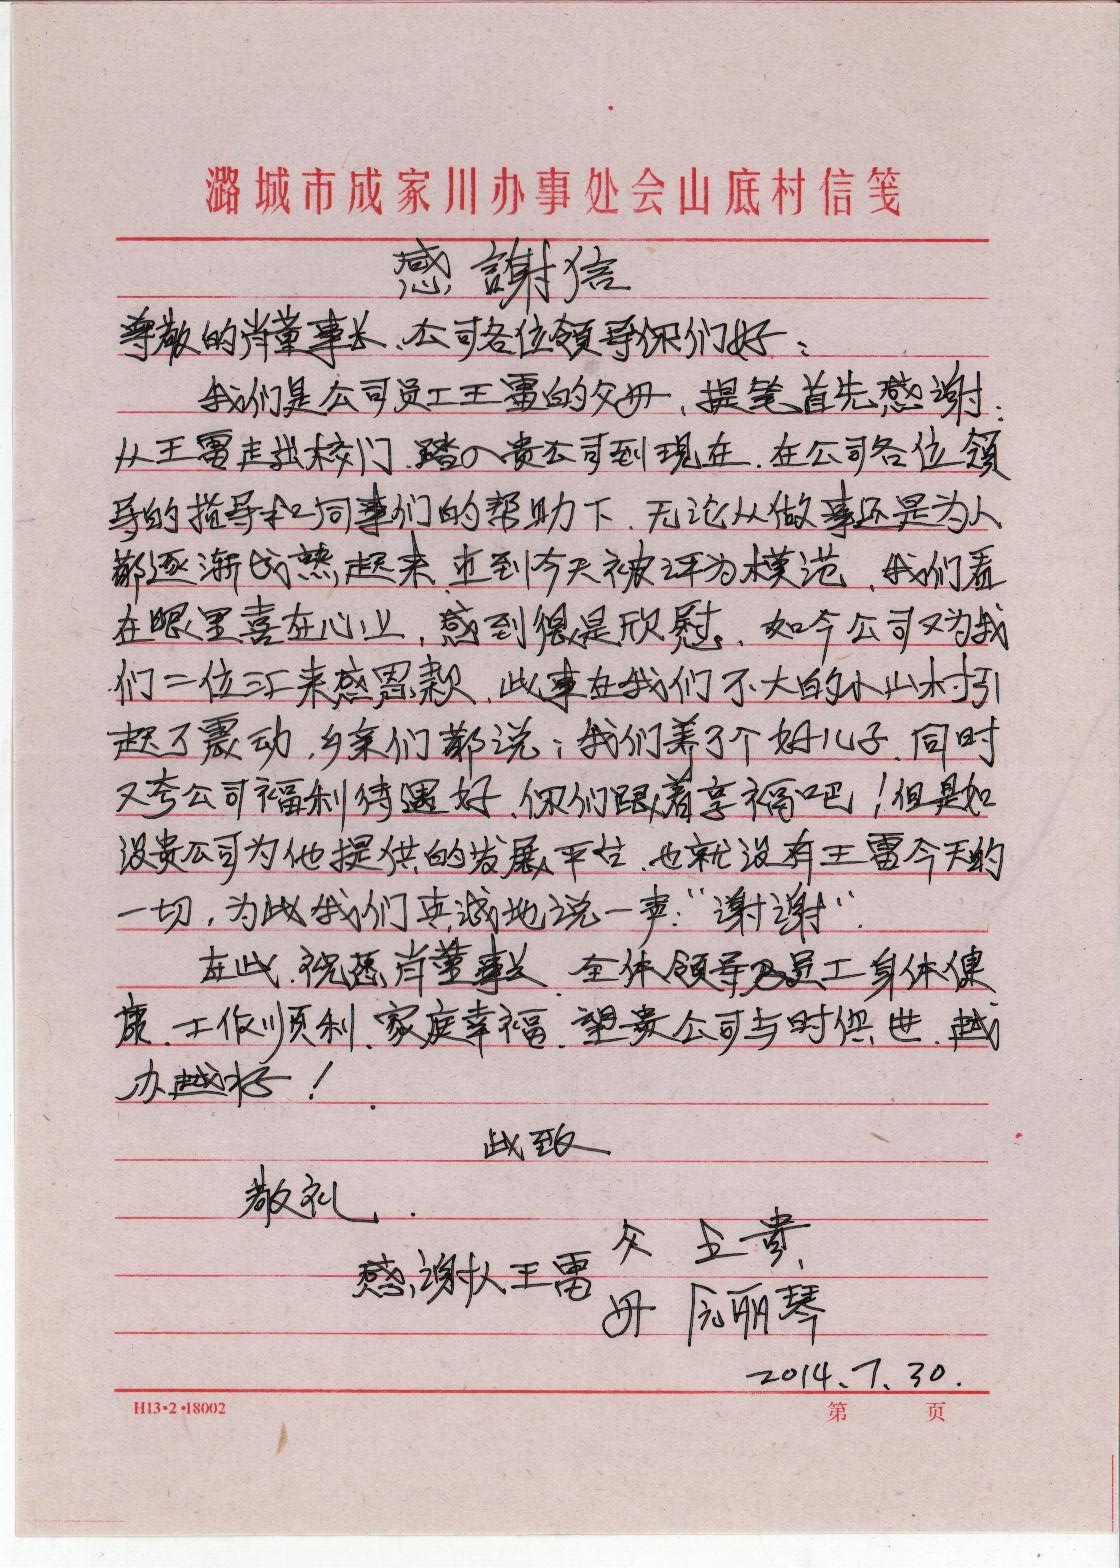 潞城市成家川办事处会山底村信笺
感謝信
尊敬的肖董事长、公司各位领导你们好：
我们是公司员工王雷的父母，提笔首先感谢：
从王雷走出校门，踏入贵公司到现在，在公司各位领
导的指导和同事们的帮助下，无论从做事还是为人
都逐渐成熟起来，直到今天被评为模范，我们看
在眼里喜在心上，感到很是欣慰。如今公司又为我
们二位汇来感恩款，此事在我们不大的小山村引
起了震动，乡亲们都说；我们养了个好儿子，同时
又夸公司福利待遇好，你们跟着享福吧！但是如
没贵公司为他提供的发展平台，也就没有王雷今天的
一切，为此我们真诚地说一声：“谢谢”．
在此，祝愿肖董事长、全体领导及员工身体健
康、工作顺利、家庭幸福、望贵公司与时俱进、越
办越好！
此致
敬礼．
感谢人王雷
父 王贵
母 丽琴
2014、7、30．
H13·2·18002
第 页